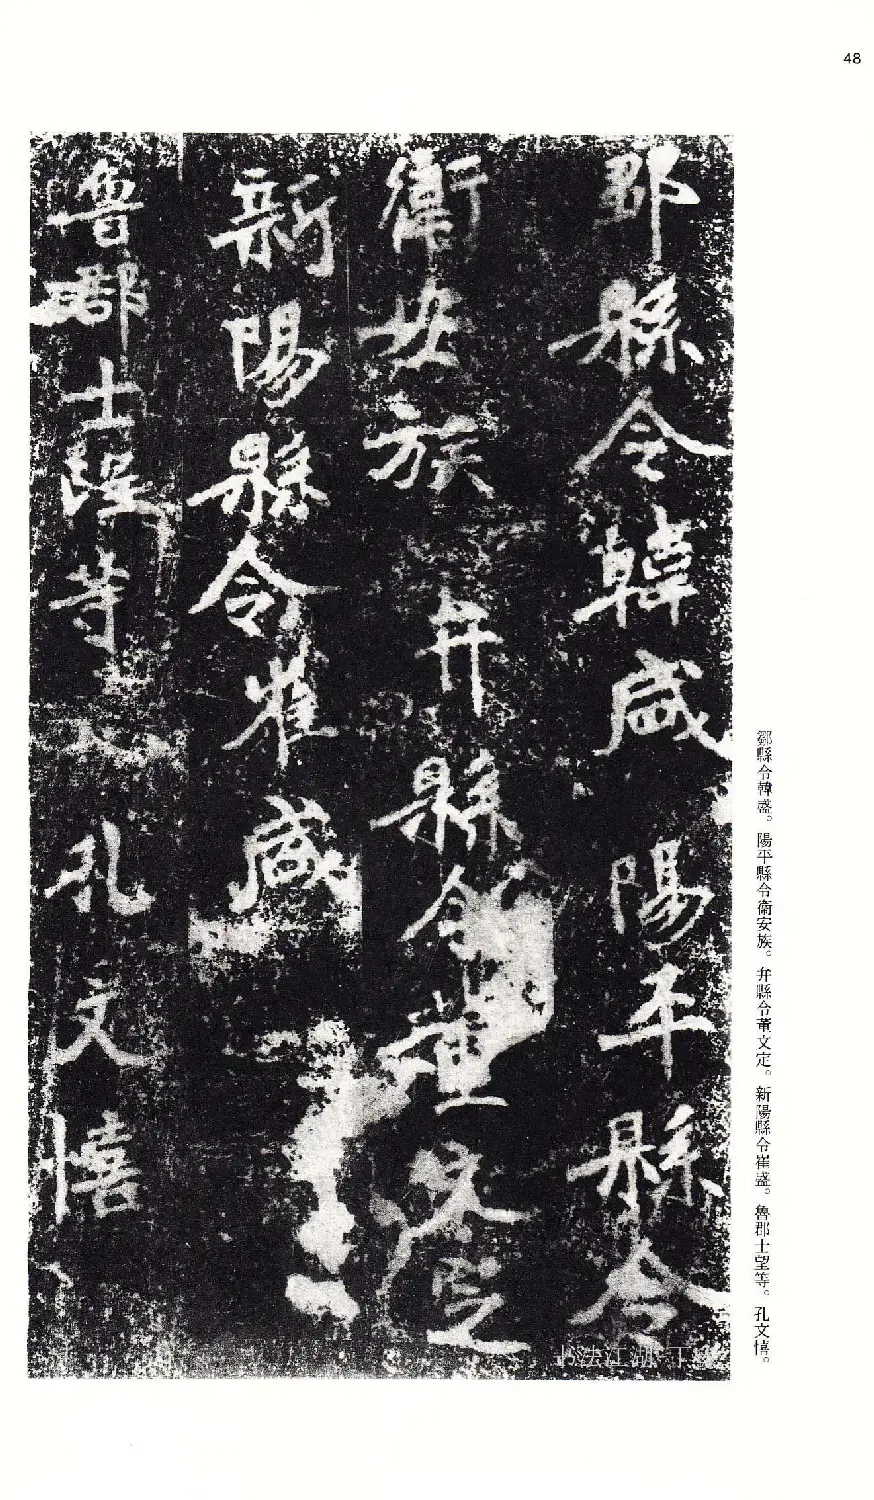 48
鄒縣令韓盛陽平縣令
衞安族弁縣令董文定
新陽縣令崔盛
魯郡士望等孔文憘
鄒縣令韓盛。陽平縣令衞安族。弁縣令董文定。新陽縣令崔盛。魯郡士望等。孔文憘。
书法江湖